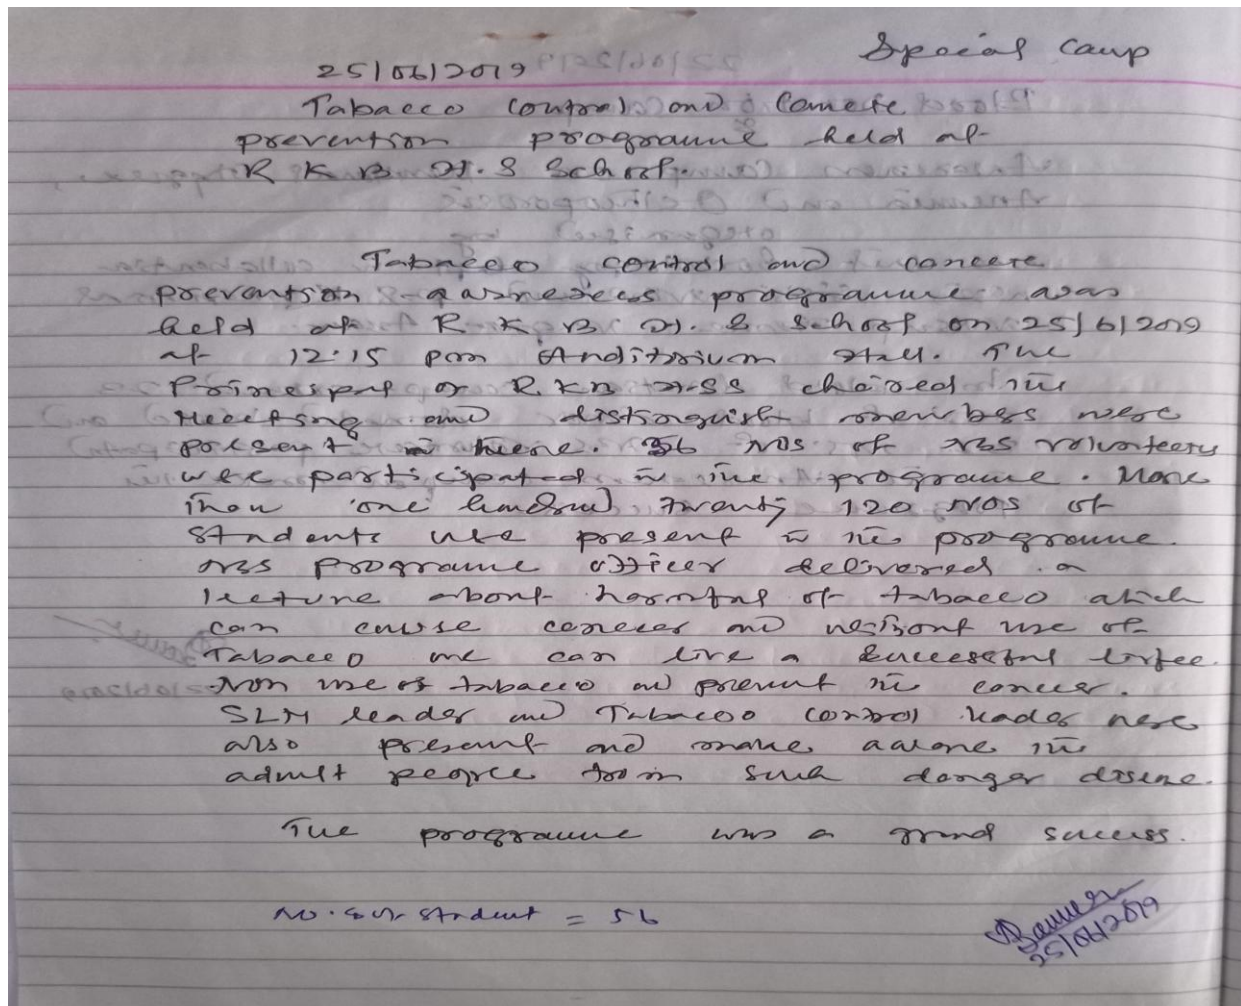 Special Camp
25/06/2019
Tabacco Control and Cancere
prevention programme held at
R K B H.S School.
Tabacco control and cancere
prevention programme was
held at R K B H. S School on 25/6/2019
at 12:15 pm Auditorium Hall. The
Principal of R. KB H.SS chaired the
Meeting and distinguish members were
present in there. 56 NOS of NSS volunteers
were participated in the programme. More
than one hundred twenty 120 NOS of
students were present in the programme.
NSS programme officer delivered a
lecture about harmful of tabacco which
can cause cancer and without use of
Tabacco we can live a successful
Non use of tabacco prevent the cancer.
SLM leader and Tabacco Control leader were
also present and make aware the
adult people from such danger disese.
The programme was a grand success.
No. of student = 56
25/06/2019